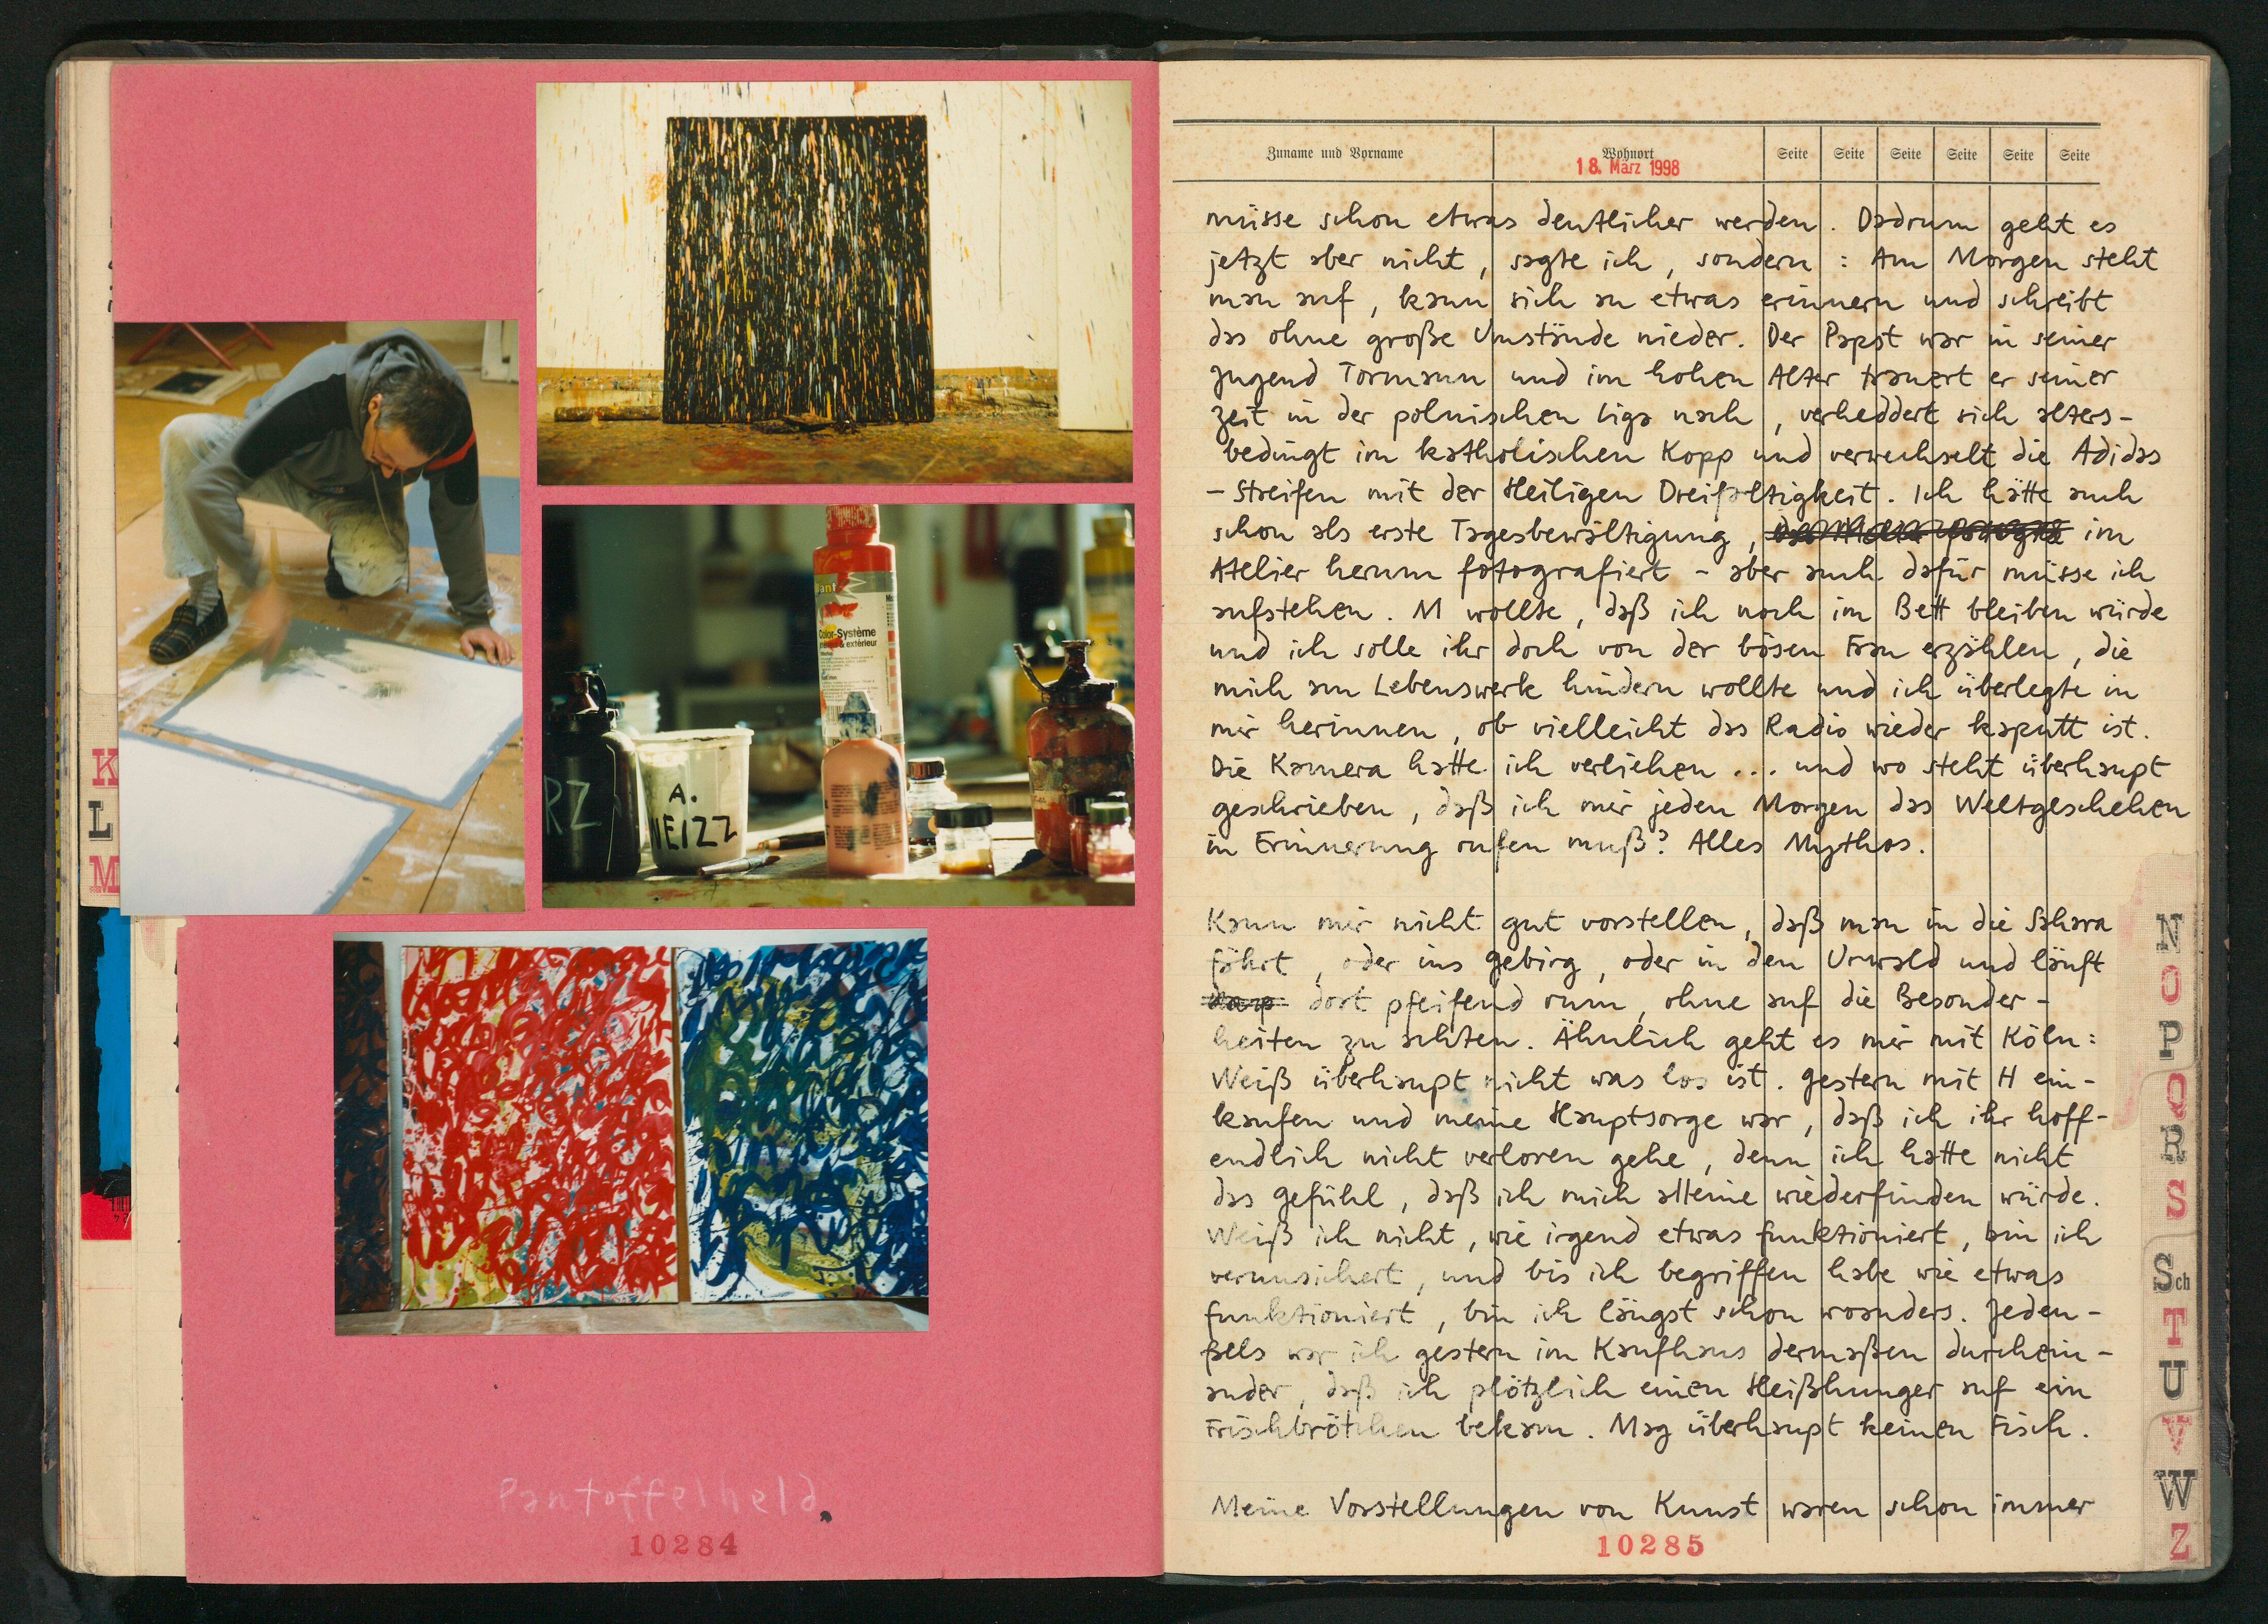 K
L
M
ant
Color-Système
& extérieur
RZ
A.
Pantoffelheld
10284
Zuname und Vorname Wohnort Seite Seite Seite Seite Seite Seite
18. März 1998
müsse schon etwas deutlicher werden. Dadrum geht es
jetzt aber nicht, sagte ich, sondern: Am Morgen steht
man auf, kann sich an etwas erinnern und schreibt
das ohne große Umstände nieder. Der Papst war in seiner
Jugend Tormann und im hohen Alter trauert er seiner
Zeit in der polnischen Liga nach, verheddert sich alters-
bedingt im katholischen Kopp und verwechselt die Adidas
-Streifen mit der Heiligen Dreifaltigkeit. Ich hätte auch
schon als erste Tagesbewältigung, im
Atelier herum fotografiert - aber auch dafür müsse ich
aufstehen. M wollte, daß ich noch im Bett bleiben würde
und ich solle ihr doch von der bösen Frau erzählen, die
mich am Lebenswerk hindern wollte und ich überlegte in
mir herinnen, ob vielleicht das Radio wieder kaputt ist.
Die Kamera hatte ich verliehen ... und wo steht überhaupt
geschrieben, daß ich mir jeden Morgen das Weltgeschehen
in Erinnerung rufen muß? Alles Mythos.
Kann mir nicht gut vorstellen, daß man in die Sahara
fährt, oder ins Gebirg, oder in den Urwald und läuft
dort pfeifend rum, ohne auf die Besonder-
heiten zu achten. Ähnlich geht es mir mit Köln:
Weiß überhaupt nicht was los ist. Gestern mit H ein-
kaufen und meine Hauptsorge war, daß ich ihr hoff-
endlich nicht verloren gehe, denn ich hatte nicht
das Gefühl, daß ich mich alleine wiederfinden würde.
Weiß ich nicht, wie irgend etwas funktioniert, bin ich
verunsichert, und bis ich begriffen habe wie etwas
funktioniert, bin ich längst schon woanders. Jeden-
falls war ich gestern im Kaufhaus dermaßen durchein-
ander, daß ich plötzlich einen Heißhunger auf ein
Fischbrötchen bekam. Mag überhaupt keinen Fisch.
Meine Vorstellungen von Kunst waren schon immer
10285
N
O
P
Q
R
S
Sch
T
U
V
W
Z